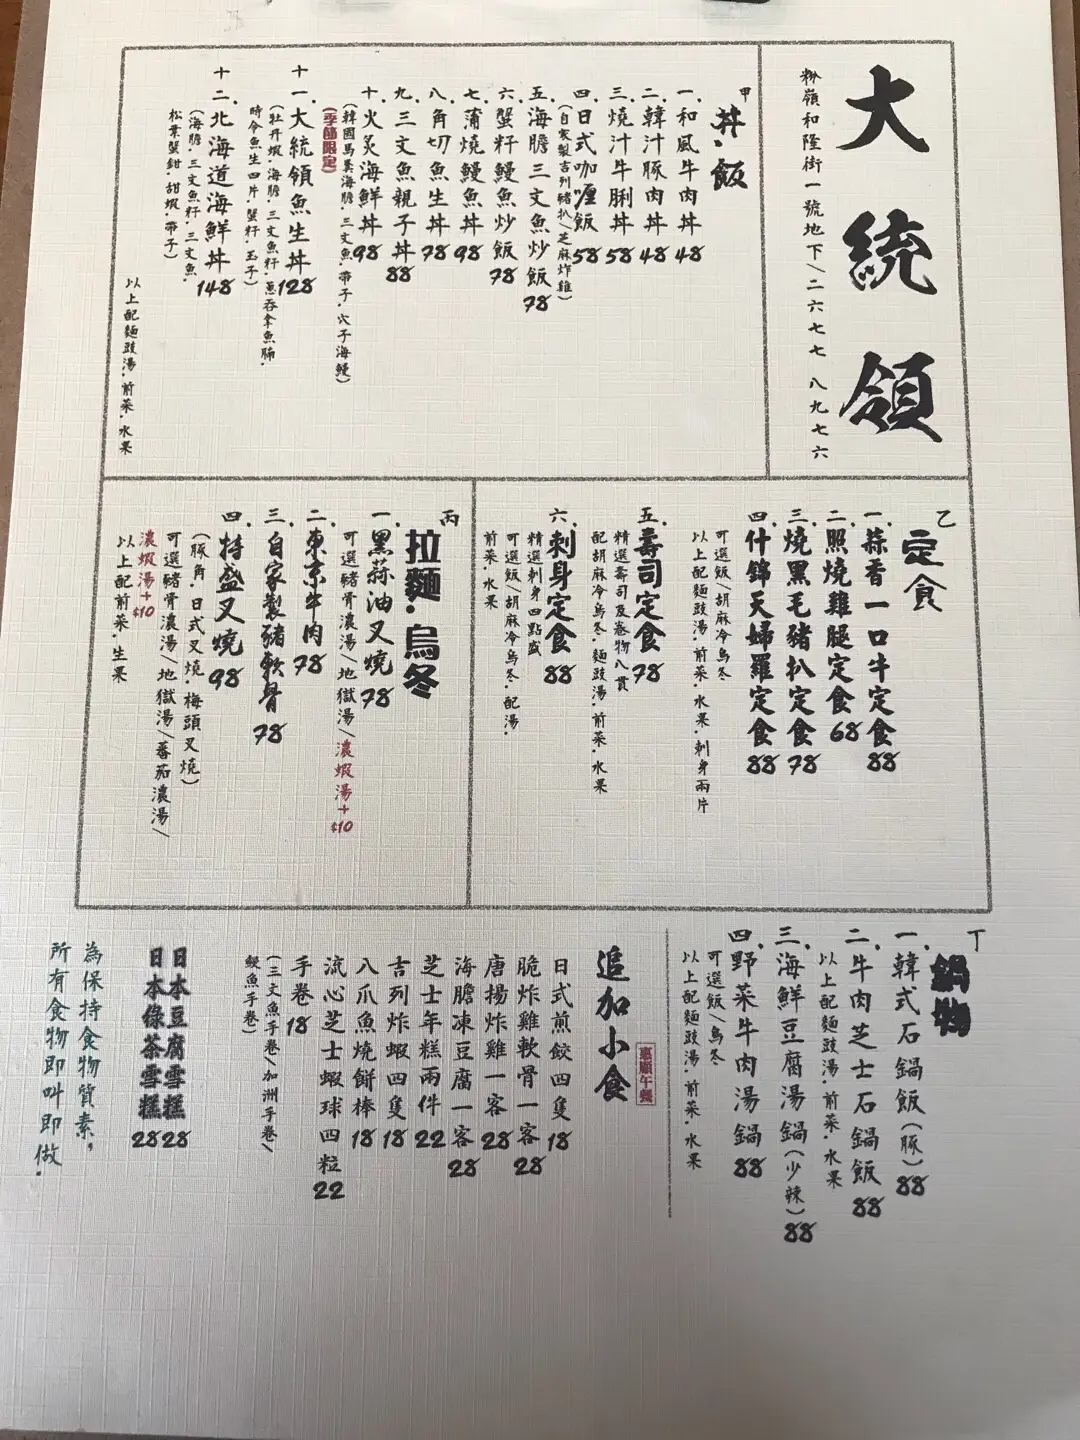 大統領
粉嶺和隆街一號地下/二六七七 八九七六
甲
丼.飯
一.和風牛肉丼48
二.韓汁豚肉丼48
三.燒汁牛脷丼58
四.日式咖喱飯58
(自家製吉列豬扒/芝麻炸雞)
五.海膽三文魚炒飯78
六.蟹籽鰻魚炒飯78
七.蒲燒鰻魚丼98
八.角切魚生丼78
九.三文魚親子丼88
十.火炙海鮮丼98
(韓國馬糞海膽.三文魚.帶子.穴子海鰻)
(季節限定)
十一.大統領魚生丼128
(牡丹蝦.海膽.三文魚籽.吞拿魚腩.
時令魚生四片.蟹籽.玉子)
十二.北海道海鮮丼148
(海膽.三文魚籽.三文魚.
松葉蟹鉗.甜蝦.帶子)
以上配麵豉湯.前菜.水果
乙
定食
一.蒜香一口牛定食88
二.照燒雞腿定食68
三.燒黑毛豬扒定食78
四.什錦天婦羅定食88
可選飯/胡麻冷烏冬
以上配麵豉湯.前菜.水果.刺身兩片
五.壽司定食78
精選壽司及卷物八貫
配胡麻冷烏冬.麵豉湯.前菜.水果
六.刺身定食88
精選刺身四點盛
可選飯/胡麻冷烏冬.配湯.
前菜.水果
丙
拉麵.烏冬
一.黑蒜油叉燒78
可選豬骨濃湯/地獄湯/濃蝦湯+$10
二.東京牛肉78
三.自家製豬軟骨78
四.特盛叉燒98
(豚角.日式叉燒.梅頭叉燒)
可選豬骨濃湯/地獄湯/蕃茄濃湯/
濃蝦湯+$10
以上配前菜.生果
丁
鍋物
一.韓式石鍋飯(豚)88
二.牛肉芝士石鍋飯88
以上配麵豉湯.前菜.水果
三.海鮮豆腐湯鍋(少辣)88
四.野菜牛肉湯鍋88
可選飯/烏冬
以上配麵豉湯.前菜.水果
惠顧午餐
追加小食
日式煎餃四隻18
脆炸雞軟骨一客28
唐揚炸雞一客28
海膽凍豆腐一客28
芝士年糕兩件22
吉列炸蝦四隻18
八爪魚燒餅棒18
流心芝士蝦球四粒22
手卷18
(三文魚手卷/加洲手卷/
鰻魚手卷)
日本豆腐雪糕28
日本綠茶雪糕28
為保持食物質素,
所有食物即叫即做.